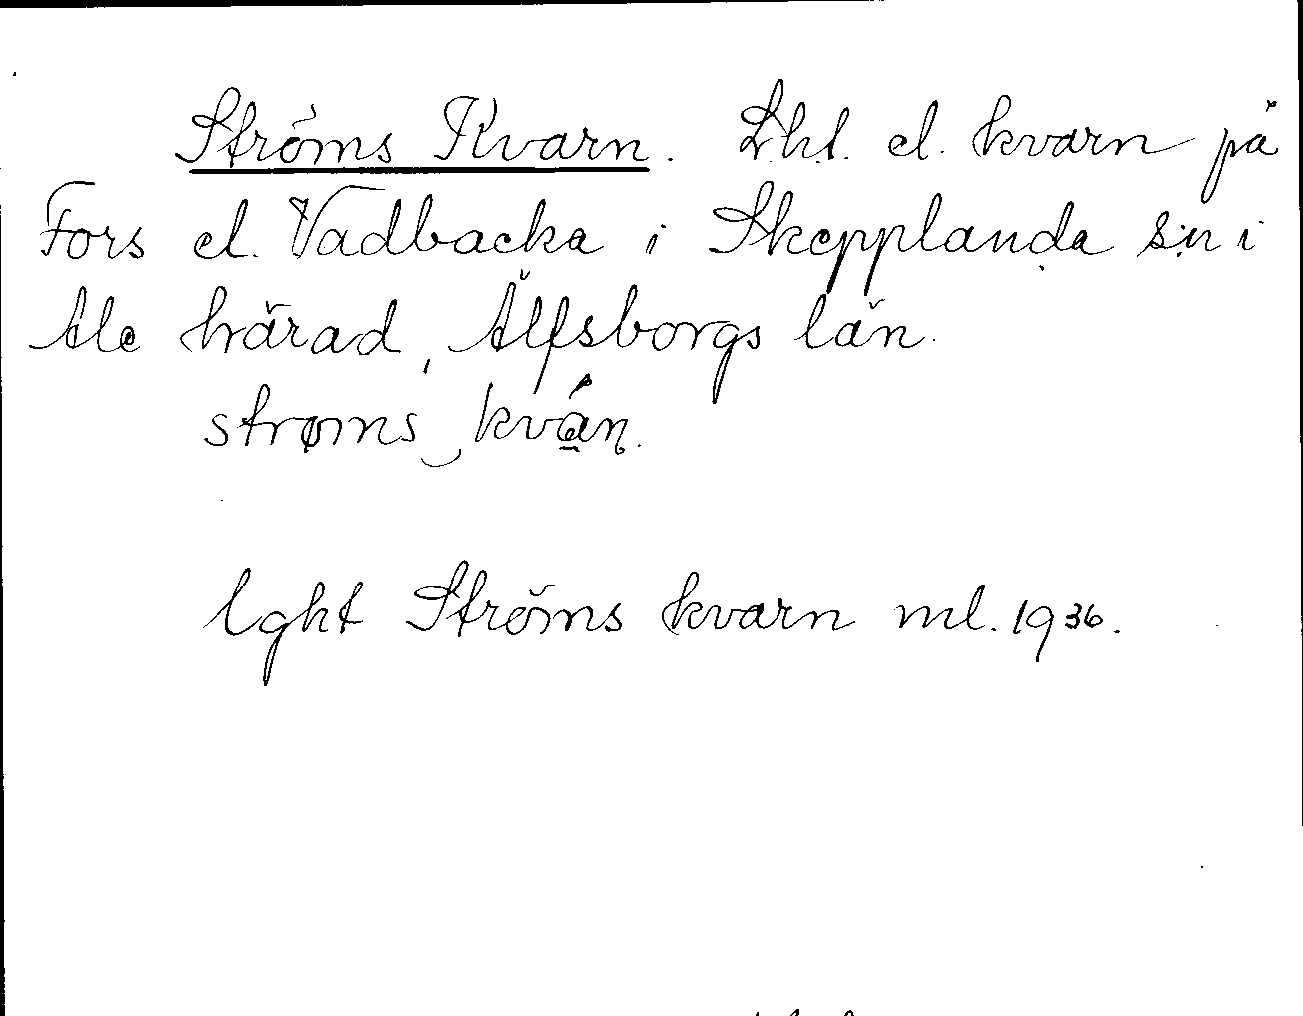 Ströms Kvarn. Lht. el. kvarn på
Fors el. Vadbacka i Skepplanda sn i
Ale härad, Älfsborgs län.
strøms kván.
lght Ströms kvarn ml. 1936.